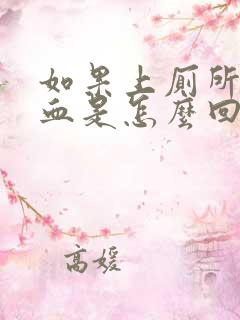 如果上厕所
血是怎麼回
高媛